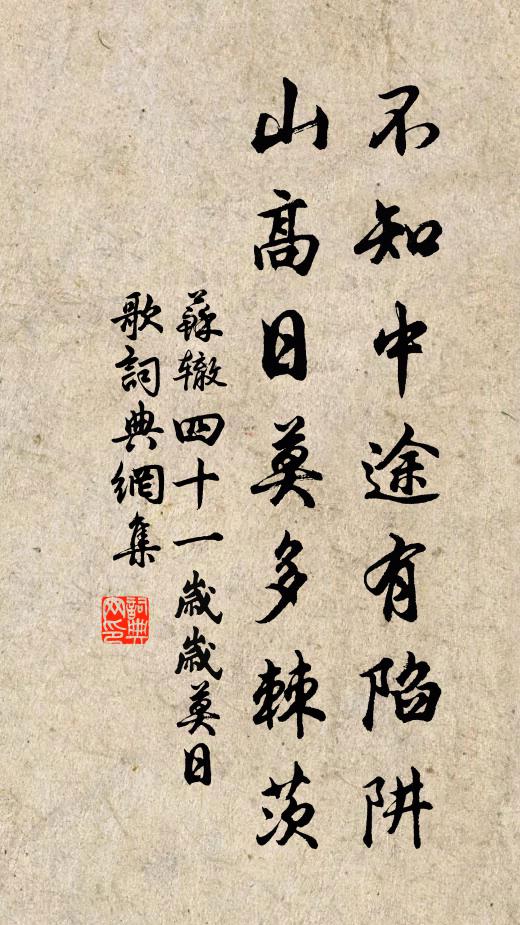 不知中途有陷阱
山高日莫多棘茨
蘇辙四十一歲歲莫日
歌詞典網集
詞典
网印